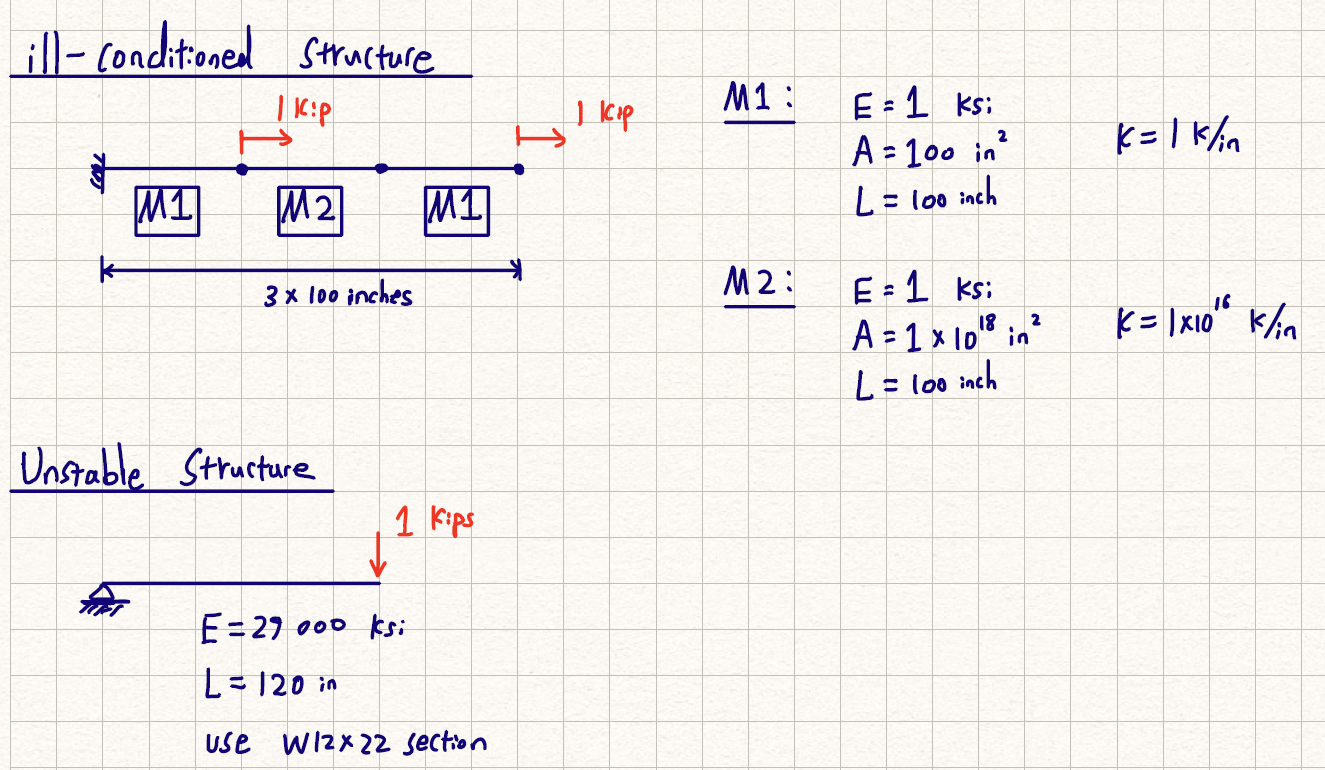 ill-conditioned Structure
1 Kip
1 Kip
M1
M2
M1
3 x 100 inches
M1:
E = 1 ksi
A = 100 in²
L = 100 inch
K = 1 K/in
M2:
E = 1 ksi
A = 1 x 10¹⁸ in²
L = 100 inch
K = 1x10¹⁶ K/in
Unstable Structure
1 Kips
E = 29 000 ksi
L = 120 in
use W12x22 section